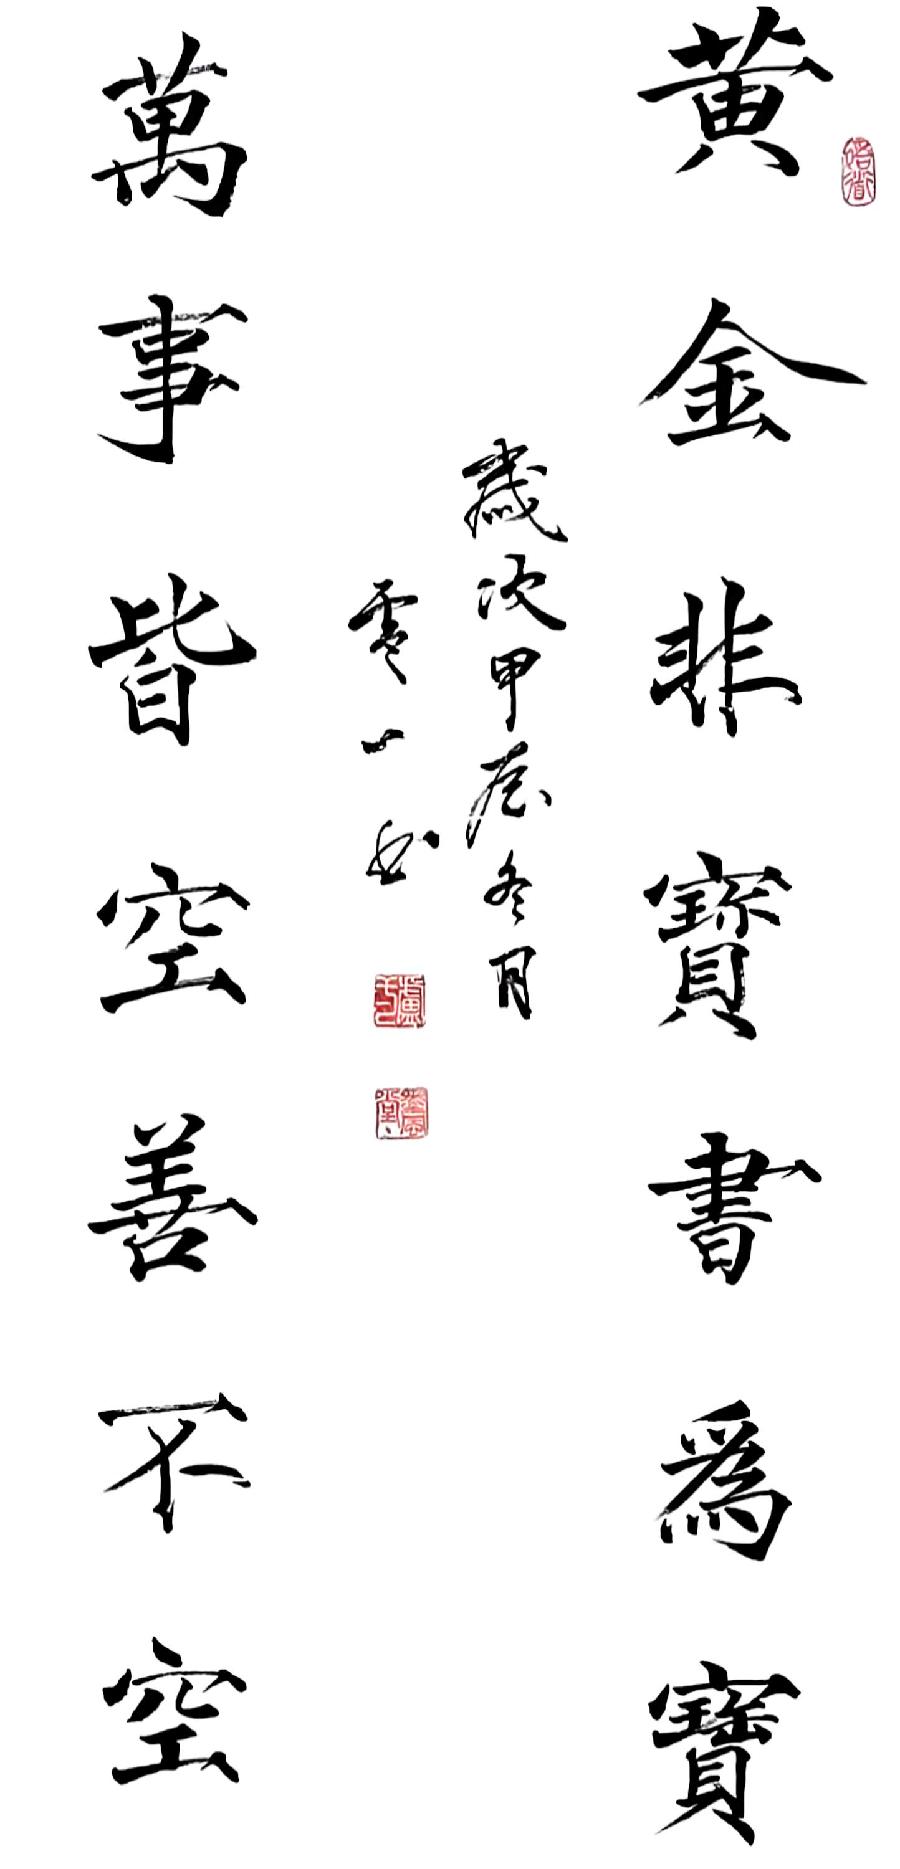 黄金非寶書爲寶
歲次甲辰冬月
雲一書
萬事皆空善不空